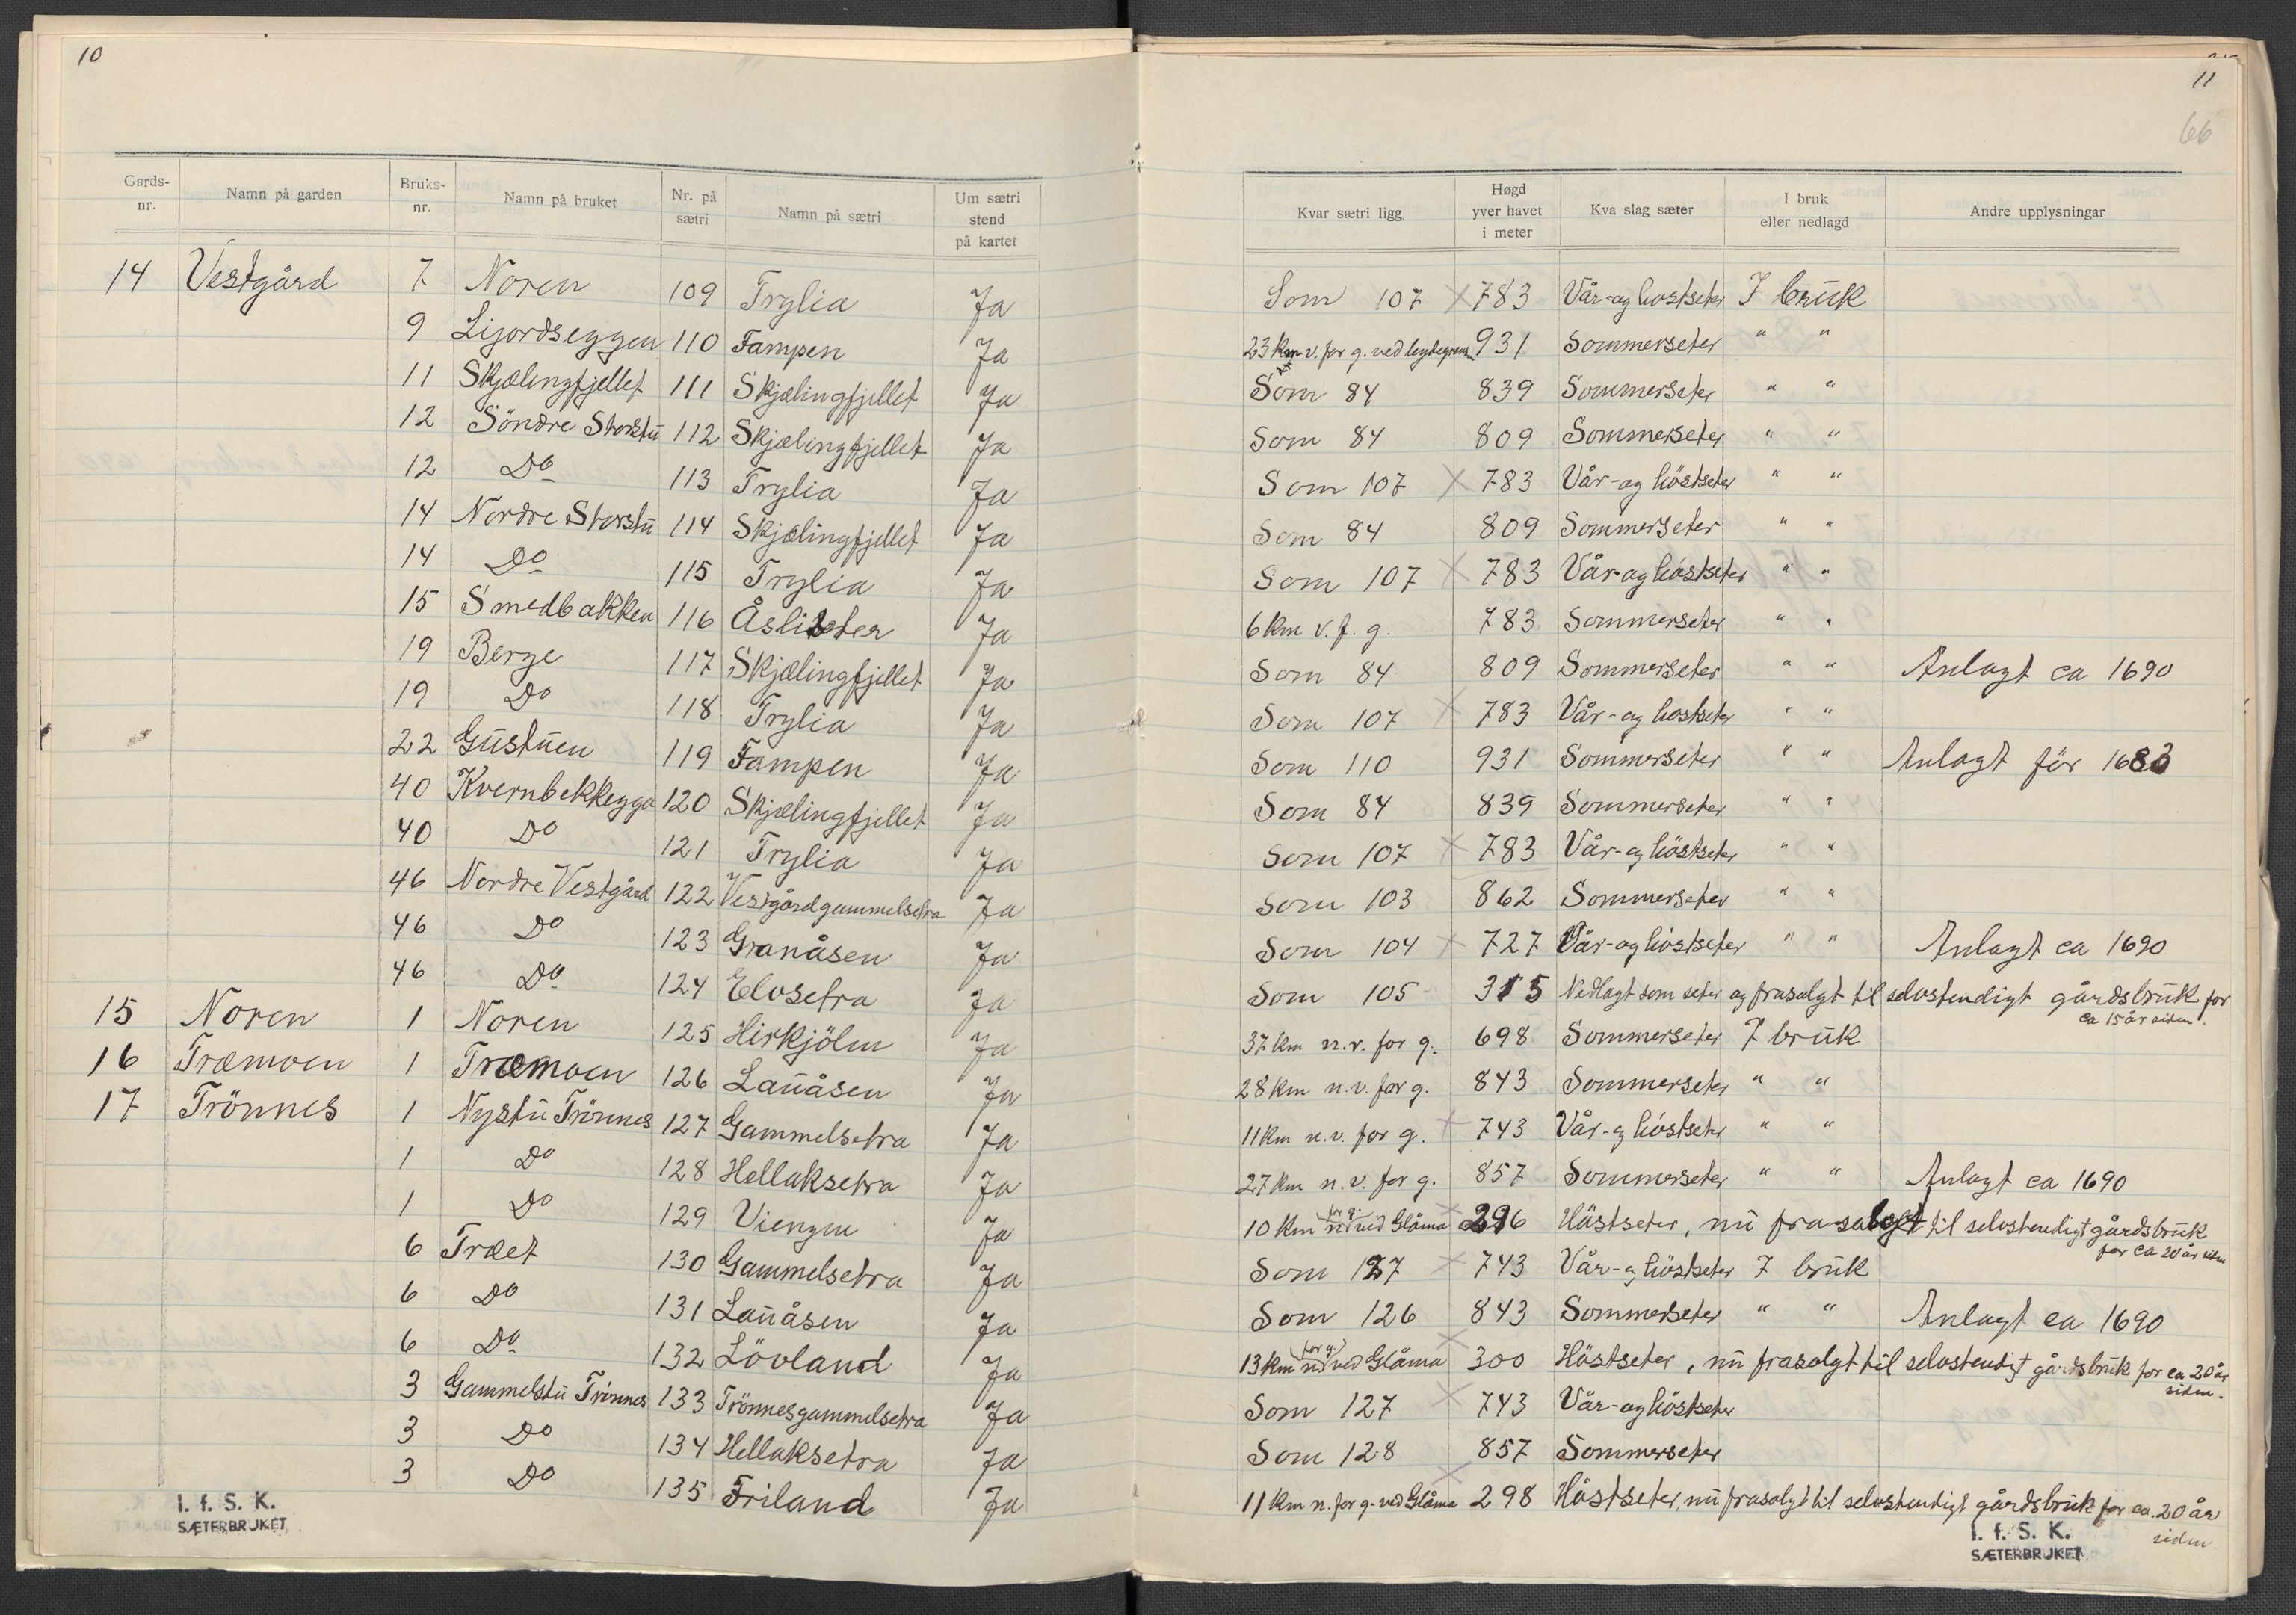 10
Gards-nr. Namn på garden Bruks-nr. Namn på bruket Nr. på sætri Namn på sætri Um sætri stend på kartet
14 Vestgård 7 Noren 109 Trylia Ja
9 Ljordseggen 110 Fampen Ja
11 Skjælingfjellet 111 Skjælingfjellet Ja
12 Söndre Storstu 112 Skjælingfjellet Ja
12 Do 113 Trylia Ja
14 Nordre Storstu 114 Skjælingfjellet Ja
14 Do 115 Trylia Ja
15 Smedbakken 116 Åsliseter Ja
19 Berge 117 Skjælingfjellet Ja
19 Do 118 Trylia Ja
22 Gustuen 119 Fampen Ja
40 Kvernbekkegga 120 Skjælingfjellet Ja
40 Do 121 Trylia Ja
46 Nordre Vestgård 122 Vestgårdgammelsetra Ja
46 Do 123 Granåsen Ja
46 Do 124 Elvsetra Ja
15 Noren 1 Noren 125 Hirkjölen Ja
16 Træmoen 1 Træmoen 126 Lauåsen Ja
17 Trönnes 1 Nystu Trönnes 127 Gammelsetra Ja
1 Do 128 Hellaksetra Ja
1 Do 129 Viengen Ja
6 Træet 130 Gammelsetra Ja
6 Do 131 Lauåsen Ja
6 Do 132 Lövland Ja
3 Gammelstu Trönnes 133 Trönnesgammelsetra Ja
3 Do 134 Hellaksetra Ja
3 Do 135 Friland Ja
I. f. S. K.
SÆTERBRUKET
11
66
Kvar sætri ligg Høgd yver havet i meter Kva slag sæter I bruk eller nedlagd Andre upplysningar
Som 107 × 783 Vår- og høstseter I bruk
23 km v. for g. ved bygdegrensen 931 Sommerseter " "
Som 84 839 Sommerseter " "
Som 84 809 Sommerseter " "
Som 107 × 783 Vår- og höstseter " "
Som 84 809 Sommerseter " "
Som 107 × 783 Vår- og höstseter " "
6 km v. f. g. 783 Sommerseter " "
Som 84 809 Sommerseter " " Anlagt ca 1690
Som 107 × 783 Vår- og höstseter " "
Som 110 931 Sommerseter " " Anlagt för 1683
Som 84 839 Sommerseter " "
Som 107 × 783 Vår- og höstseter " "
Som 103 862 Sommerseter " "
Som 104 × 727 Vår- og höstseter " " Anlagt ca 1690
Som 105 315 Nedlagt som seter og frasolgt til selvstendigt gårdsbruk for
ca 15 år siden.
37 km n.v. for g. 698 Sommerseter I bruk
28 km n.v. for g. 843 Sommerseter " "
11 km n.v. for g. × 743 Vår- og höstseter " "
27 km n.v. for g. 857 Sommerseter " " Anlagt ca 1690
10 km n. for g. ved Glåma × 296 Höstseter, nu frasolgt til selvstendigt gårdsbruk
for ca 20 år siden
Som 127 × 743 Vår- og höstseter I bruk
Som 126 843 Sommerseter " " Anlagt ca 1690
13 km n. for g. ved Glåma × 300 Höstseter, nu frasolgt til selvstendigt gårdsbruk for ca 20 år
siden.
Som 127 × 743 Vår- og höstseter
Som 128 857 Sommerseter
11 km n. for g. ved Glåma × 298 Höstseter, nu frasolgt til selvstendigt gårdsbruk for ca. 20 år
siden.
I. f. S. K.
SÆTERBRUKET